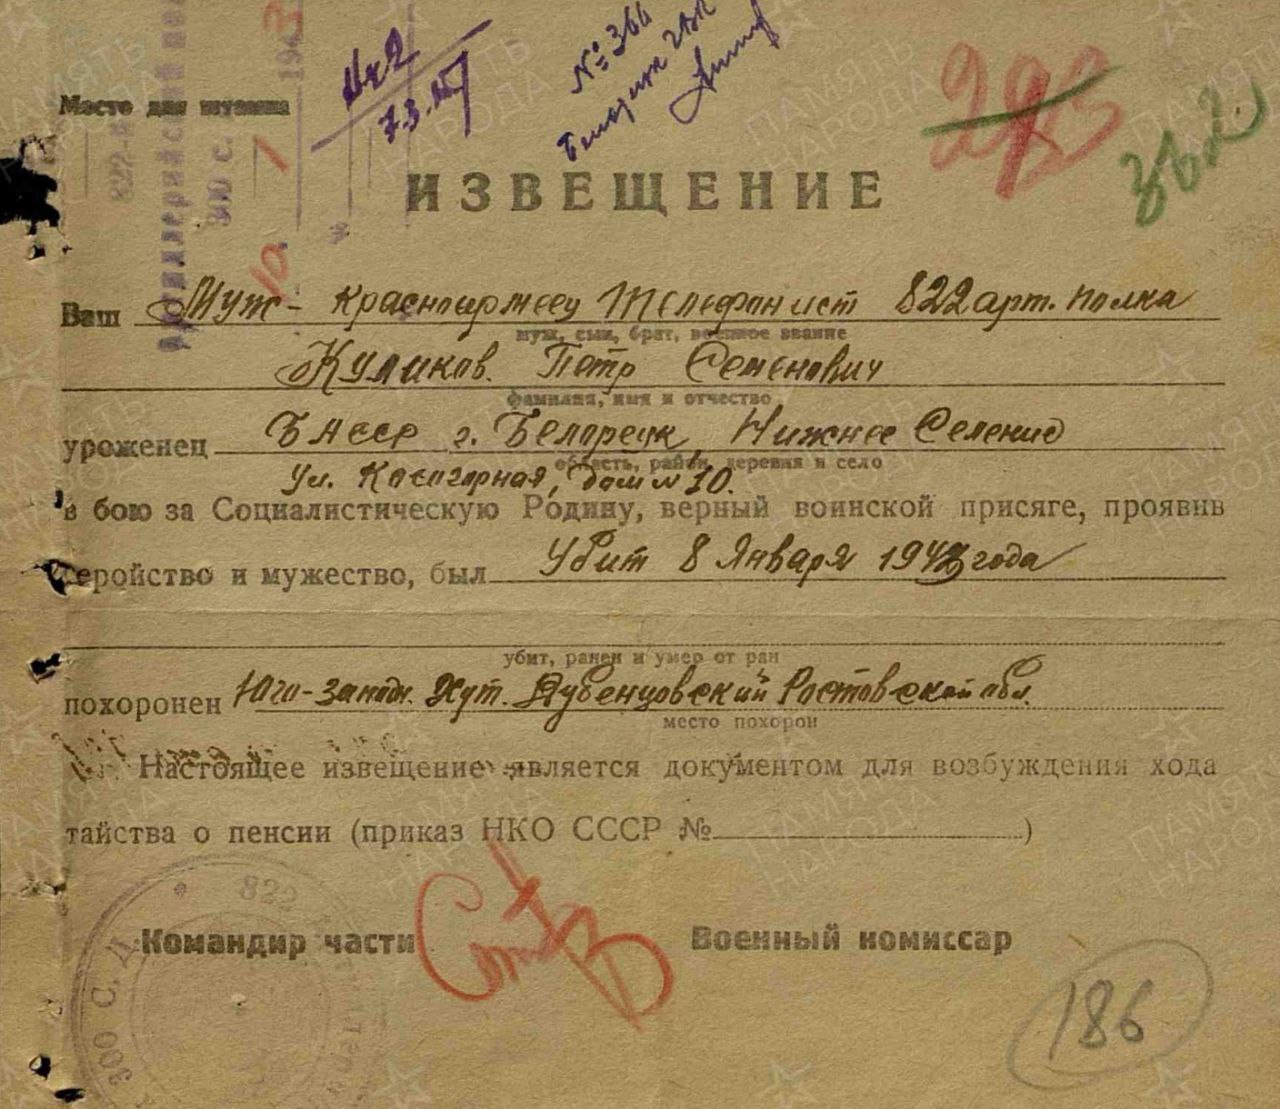 Место для штампа
822-й
артиллерийский
300 с.
10. 1 1943
7.3.
№ 366
293
362
ИЗВЕЩЕНИЕ
Ваш Муж - красноармеец телефонист 822 арт. полка
муж, сын, брат, военное звание
Куликов Петр Семенович
фамилия, имя и отчество
уроженец БАССР г. Белорецк Нижнее Селение
область, район, деревня и село
ул. Косогорная, дом № 10.
в бою за Социалистическую Родину, верный воинской присяге, проявив
геройство и мужество, был убит 8 Января 1943 года
убит, ранен и умер от ран
похоронен Юго-запад. Хут. Дубенцовский Ростовской обл.
место похорон
Настоящее извещение является документом для возбуждения хода
тайства о пенсии (приказ НКО СССР № )
822
300 С. Д.
Командир части
Военный комиссар
186
ПАМЯТЬ НАРОДА